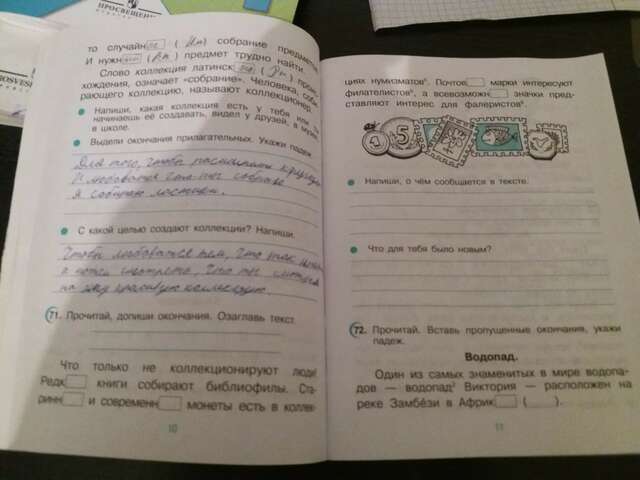 ПРОСВЕЩЕНИЕ
то случайн ое ( Им ) собрание предметов.
И нужн ый ( ) предмет трудно найти.
Слово коллекция латинск ого ( ) проис-
хождения, означает «собрание». Человека, соби-
рающего коллекцию, называют коллекционер.
Напиши, какая коллекция есть у тебя или ты
начинаешь её создавать, видел у друзей, в музее,
в школе.
Выдели окончания прилагательных. Укажи падеж.
Для того, чтобы
И любоваться
я собираю
С какой целью создают коллекции? Напиши.
Чтобы любоваться тем, что
на эту красивую коллекцию.
71. Прочитай, допиши окончания. Озаглавь текст.
Что только не коллекционируют люди!
Редк книги собирают библиофилы. Ста-
ринн и современн монеты есть в коллек-
10
циях нумизматов⁶. Почтов марки интересуют
филателистов⁶, а всевозможн значки пред-
ставляют интерес для фалеристов⁶.
1 5
Напиши, о чём сообщается в тексте.
Что для тебя было новым?
72. Прочитай. Вставь пропущенные окончания, укажи
падеж.
Водопад.
Один из самых знаменитых в мире водопа-
дов — водопад² Виктория — расположен на
реке Замбе́зи в Африк ( ).
11